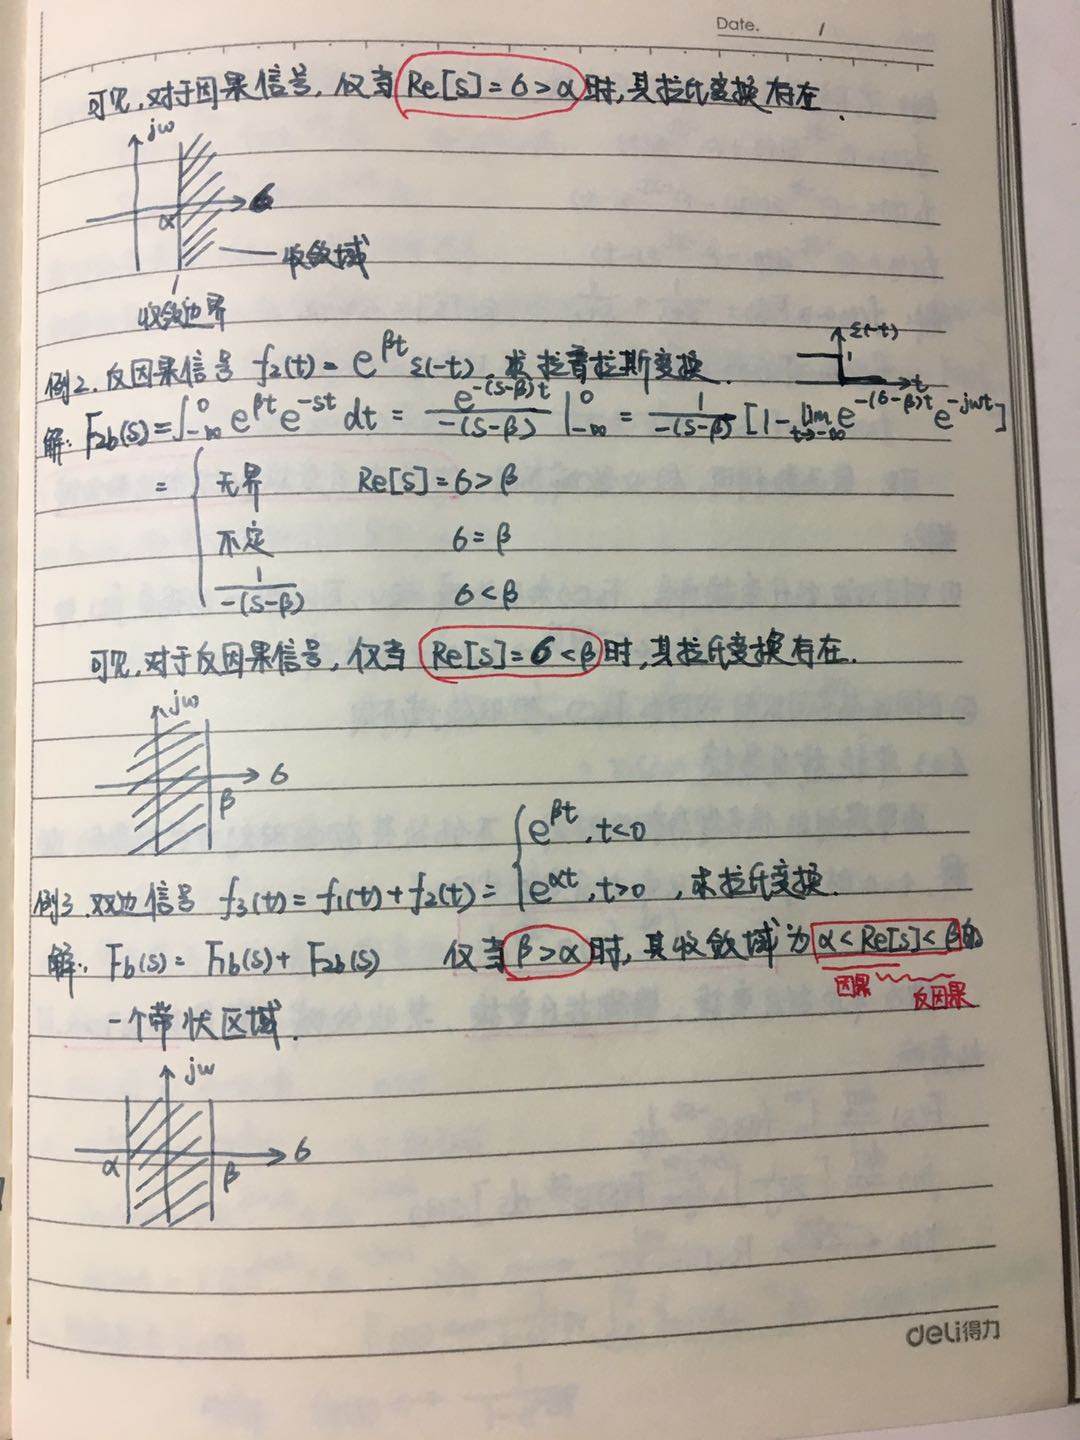 Date. /
可见,对于因果信号,仅当 Re[s]=σ>α 时,其拉氏变换存在.
jω
α σ
收敛域
收敛边界
例2. 反因果信号 f₂(t)=e^{βt}ε(-t). 求拉普拉斯变换.
ε(-t)
1
t
解: F₂b(s)=∫_{-∞}^{0} e^{βt}e^{-st}dt = e^{-(s-β)t}/-(s-β) |_{-∞}^{0} = 1/-(s-β) [1-lim_{t→-∞} e^{-(σ-β)t}e^{-jωt}]
= { 无界 Re[s]=σ>β
不定 σ=β
1/-(s-β) σ<β
可见,对于反因果信号,仅当 Re[s]=σ<β 时,其拉氏变换存在.
jω
σ
β
例3. 双边信号 f₃(t)=f₁(t)+f₂(t)= { e^{βt}, t<0
e^{αt}, t>0 ,求拉氏变换.
解: Fb(s)=F₁b(s)+F₂b(s) 仅当 β>α 时,其收敛域为 α<Re[s]<β 的
因果 反因果
一个带状区域.
jω
α β σ
deli得力